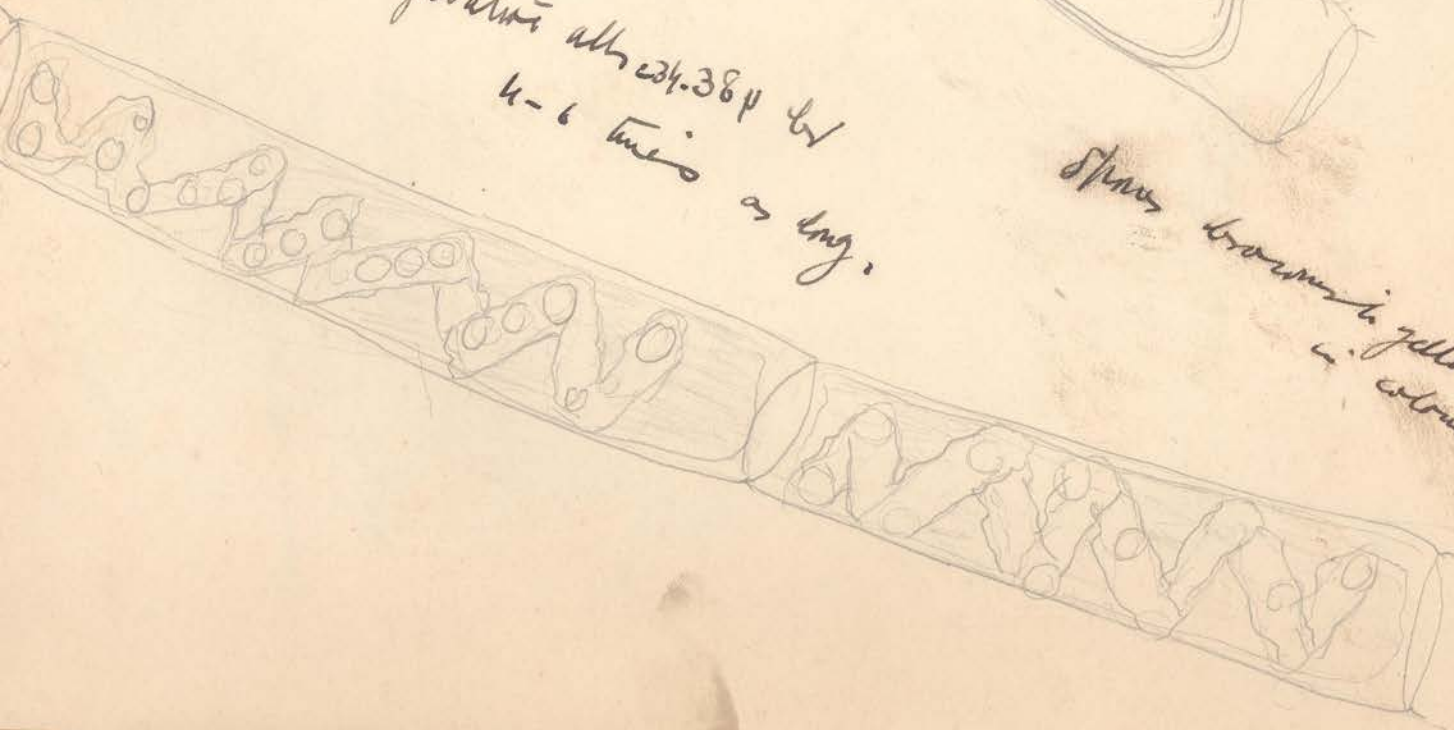 cells 34-38μ br
4-6 times
as long.
Spores brownish yell
in colou